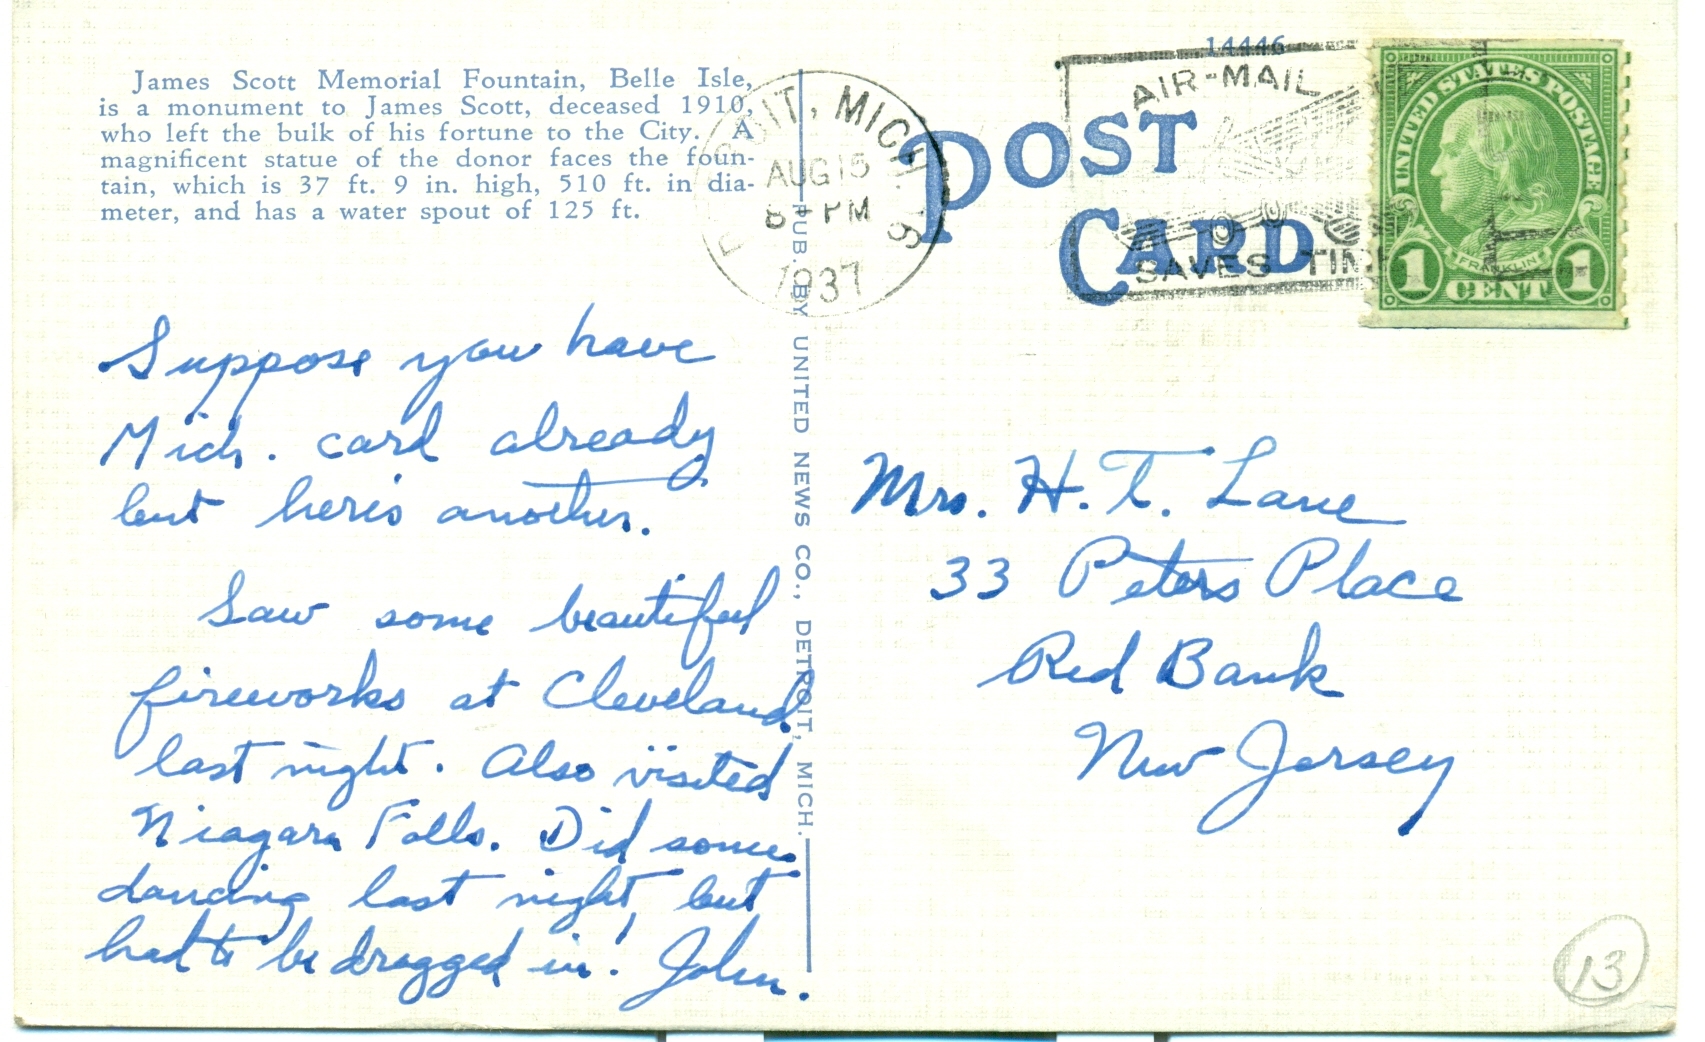 James Scott Memorial Fountain, Belle Isle,
is a monument to James Scott, deceased 1910,
who left the bulk of his fortune to the City. A
magnificent statue of the donor faces the foun-
tain, which is 37 ft. 9 in. high, 510 ft. in dia-
meter, and has a water spout of 125 ft.
14446
POST
CARD
MICH.
AUG 15
PM
1937
AIR-MAIL
SAVES TIME
UNITED STATES POSTAGE
FRANKLIN
1 CENT 1
PUB. BY UNITED NEWS CO., DETROIT, MICH.
Suppose you have
Mich. card already
but here's another.
Saw some beautiful
fireworks at Cleveland
last night. Also visited
Niagara Falls. Did some
dancing last night, but
had to be dragged in! John.
Mrs. H. T. Lane
33 Peters Place
Red Bank
New Jersey
13